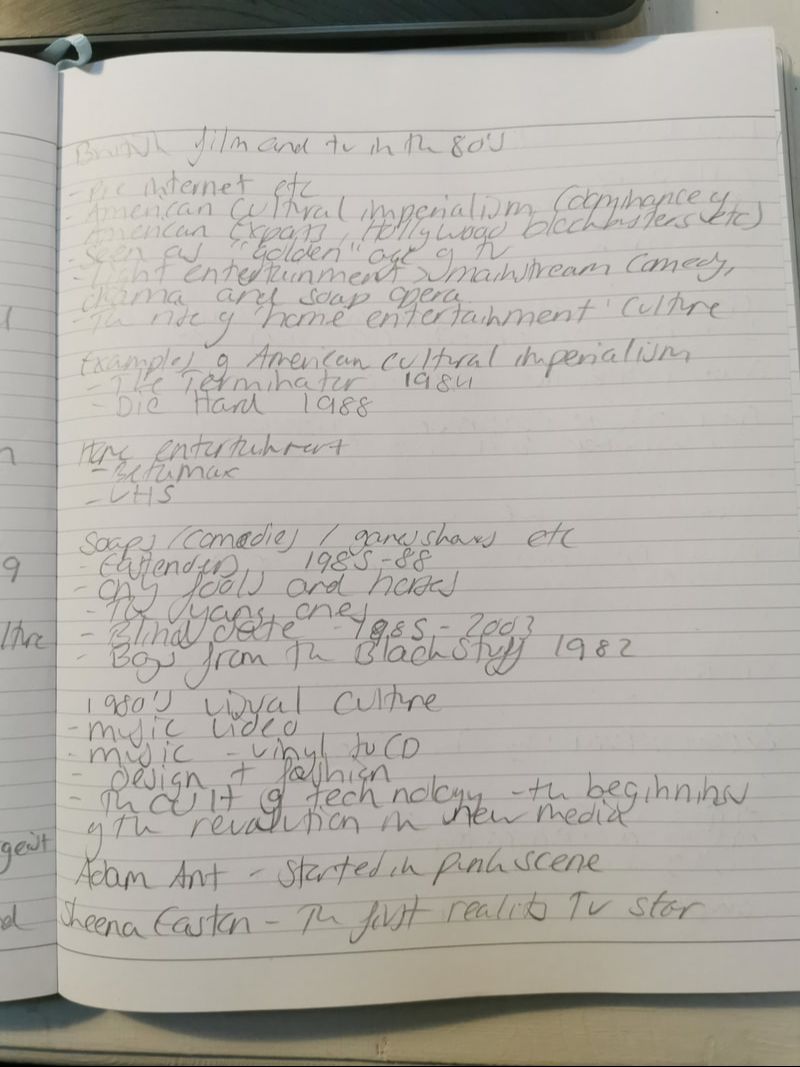 British film and tv in the 80's
- Pre internet etc
- American cultural imperialism (dominance of
American exports, Hollywood blockbusters etc)
- Seen as "golden" age of tv
- Light entertainment > mainstream comedy,
drama and soap opera
- The rise of 'home entertainment' culture
Examples of American cultural imperialism
- The Terminator 1984
- Die Hard 1988
Home entertainment
- Betamax
- VHS
Soaps / comedies / gameshows etc
- Eastenders 1985-88
- Only fools and horses
- The young ones
- Blind date - 1985 - 2003
- Boys from the Black Stuff 1982
1980's visual culture
- music video
- music - vinyl to CD
- design + fashion
- The cult of technology - the beginnings
of the revolution in new media
Adam Ant - Started in punk scene
Sheena Easton - The first reality TV star
9
lture
geist